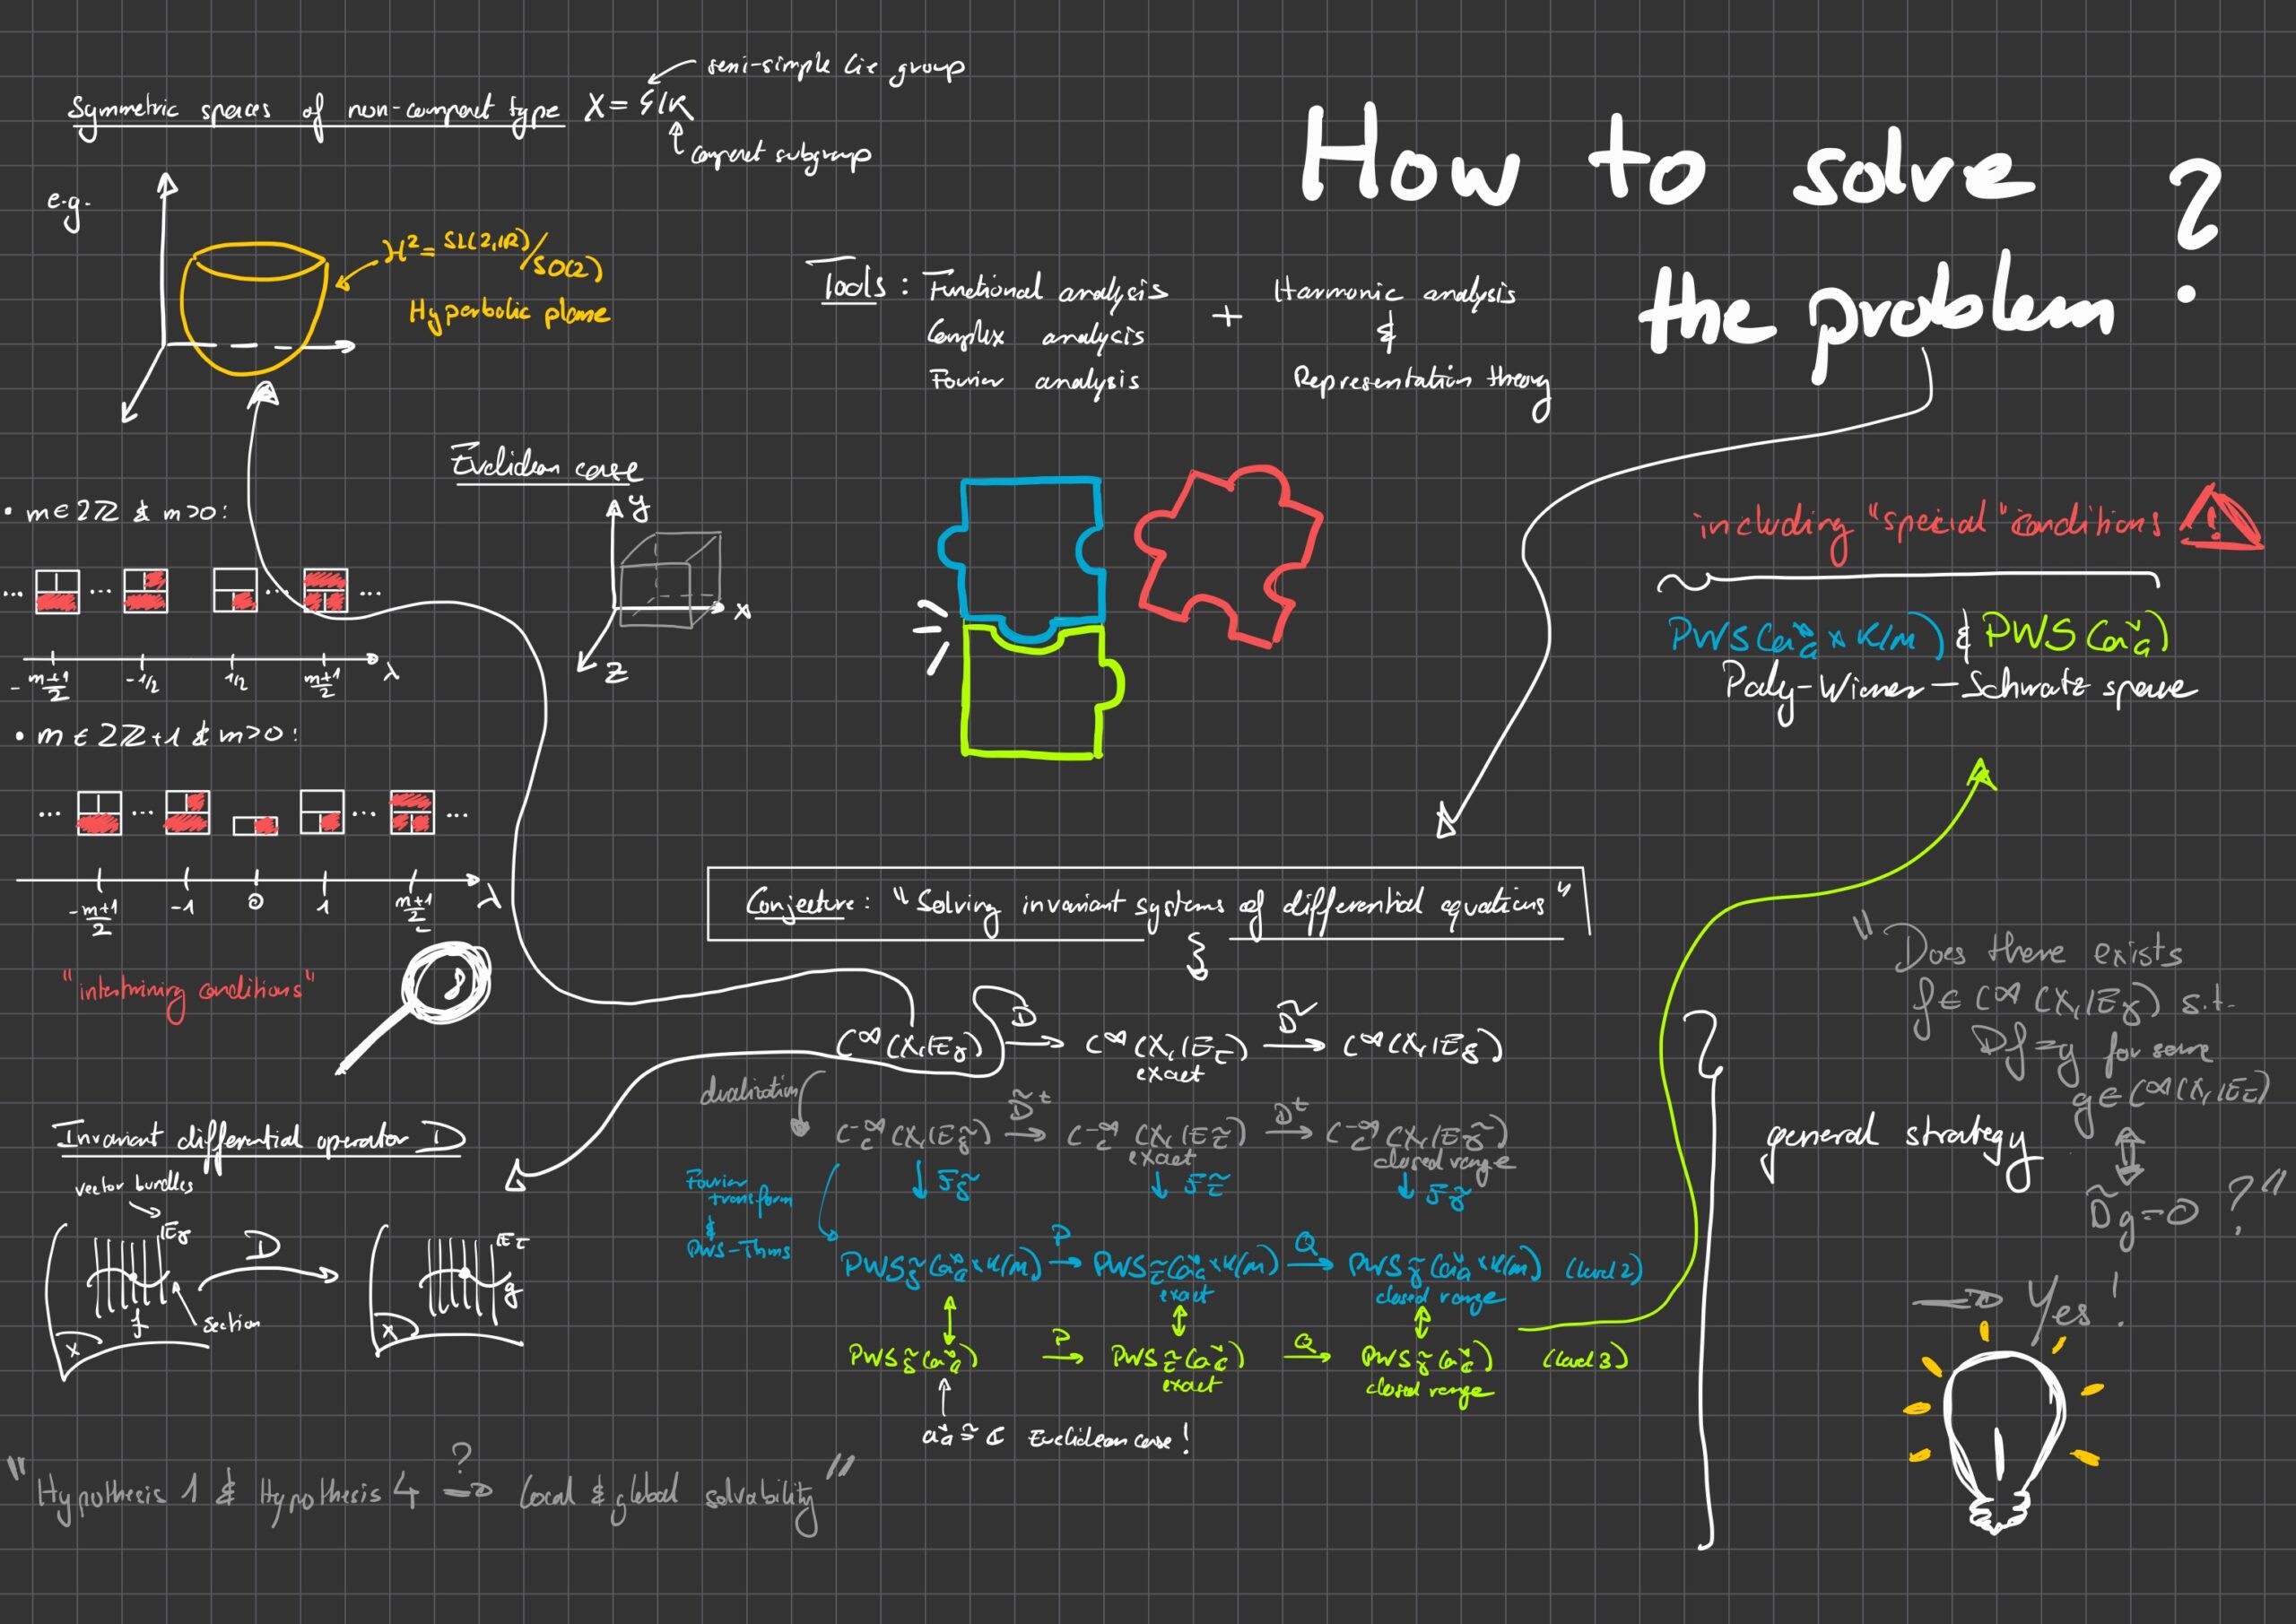 semi-simple Lie group
Symmetric spaces of non-compact type X = G/K
compact subgroup
e.g.
H² = SL(2,ℝ)/SO(2)
Hyperbolic plane
How to solve the problem ?
Tools : Functional analysis
Complex analysis
Fourier analysis
+
Harmonic analysis
&
Representation theory
Euclidean case
y
x
z
• m ∈ 2ℤ & m>0 :
... ... ... ...
-(m+1)/2 -1/2 1/2 (m+1)/2 λ
• m ∈ 2ℤ+1 & m>0 :
... ... ... ...
-(m+1)/2 -1 0 1 (m+1)/2 λ
"intertwining conditions"
including "special" conditions !
PWS(𝔞*_ℂ × K/M) & PWS(𝔞*_ℂ)
Paly-Wiener-Schwartz space
Conjecture : "Solving invariant systems of differential equations"
C^∞(X, 𝔼_γ) D→ C^∞(X, 𝔼_τ) D̃→ C^∞(X, 𝔼_δ)
exact
dualization
C_c^-∞(X, 𝔼_δ̃) D̃^t→ C_c^-∞(X, 𝔼_τ̃) D^t→ C_c^-∞(X, 𝔼_γ̃)
exact closed range
Fourier transform
&
PWS-Thms
↓ F_δ̃ ↓ F_τ̃ ↓ F_γ̃
PWS_δ̃(𝔞*_ℂ × K/M) P→ PWS_τ̃(𝔞*_ℂ × K/M) Q→ PWS_γ̃(𝔞*_ℂ × K/M) (Level 2)
exact closed range
PWS_δ̃(𝔞*_ℂ) P→ PWS_τ̃(𝔞*_ℂ) Q→ PWS_γ̃(𝔞*_ℂ) (Level 3)
exact closed range
𝔞*_ℂ ≅ ℂ Euclidean case !
Invariant differential operator D
vector bundles
𝔼_γ D 𝔼_τ
f section g
X X
"Hypothesis 1 & Hypothesis 4 ?⇒ Local & global solvability"
general strategy
"Does there exists
f ∈ C^∞(X, 𝔼_γ) s.t.
Df = g for some
g ∈ C^∞(X, 𝔼_τ)
⇕
D̃g = 0 ?"
⇒ Yes !